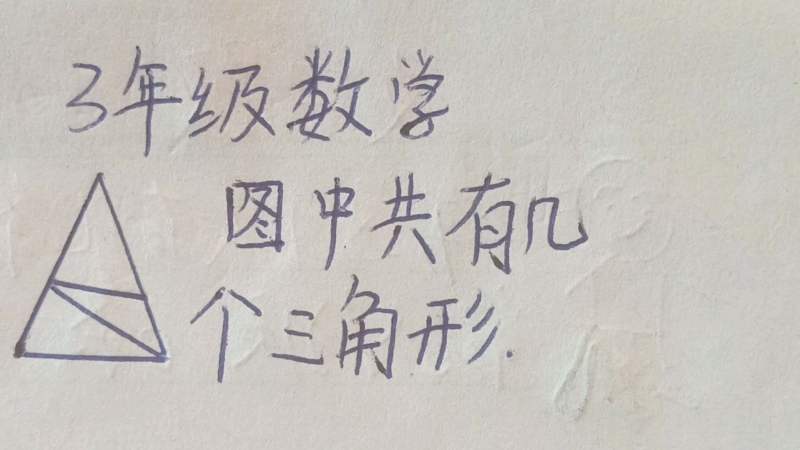 3年级数学
图中共有几
个三角形.